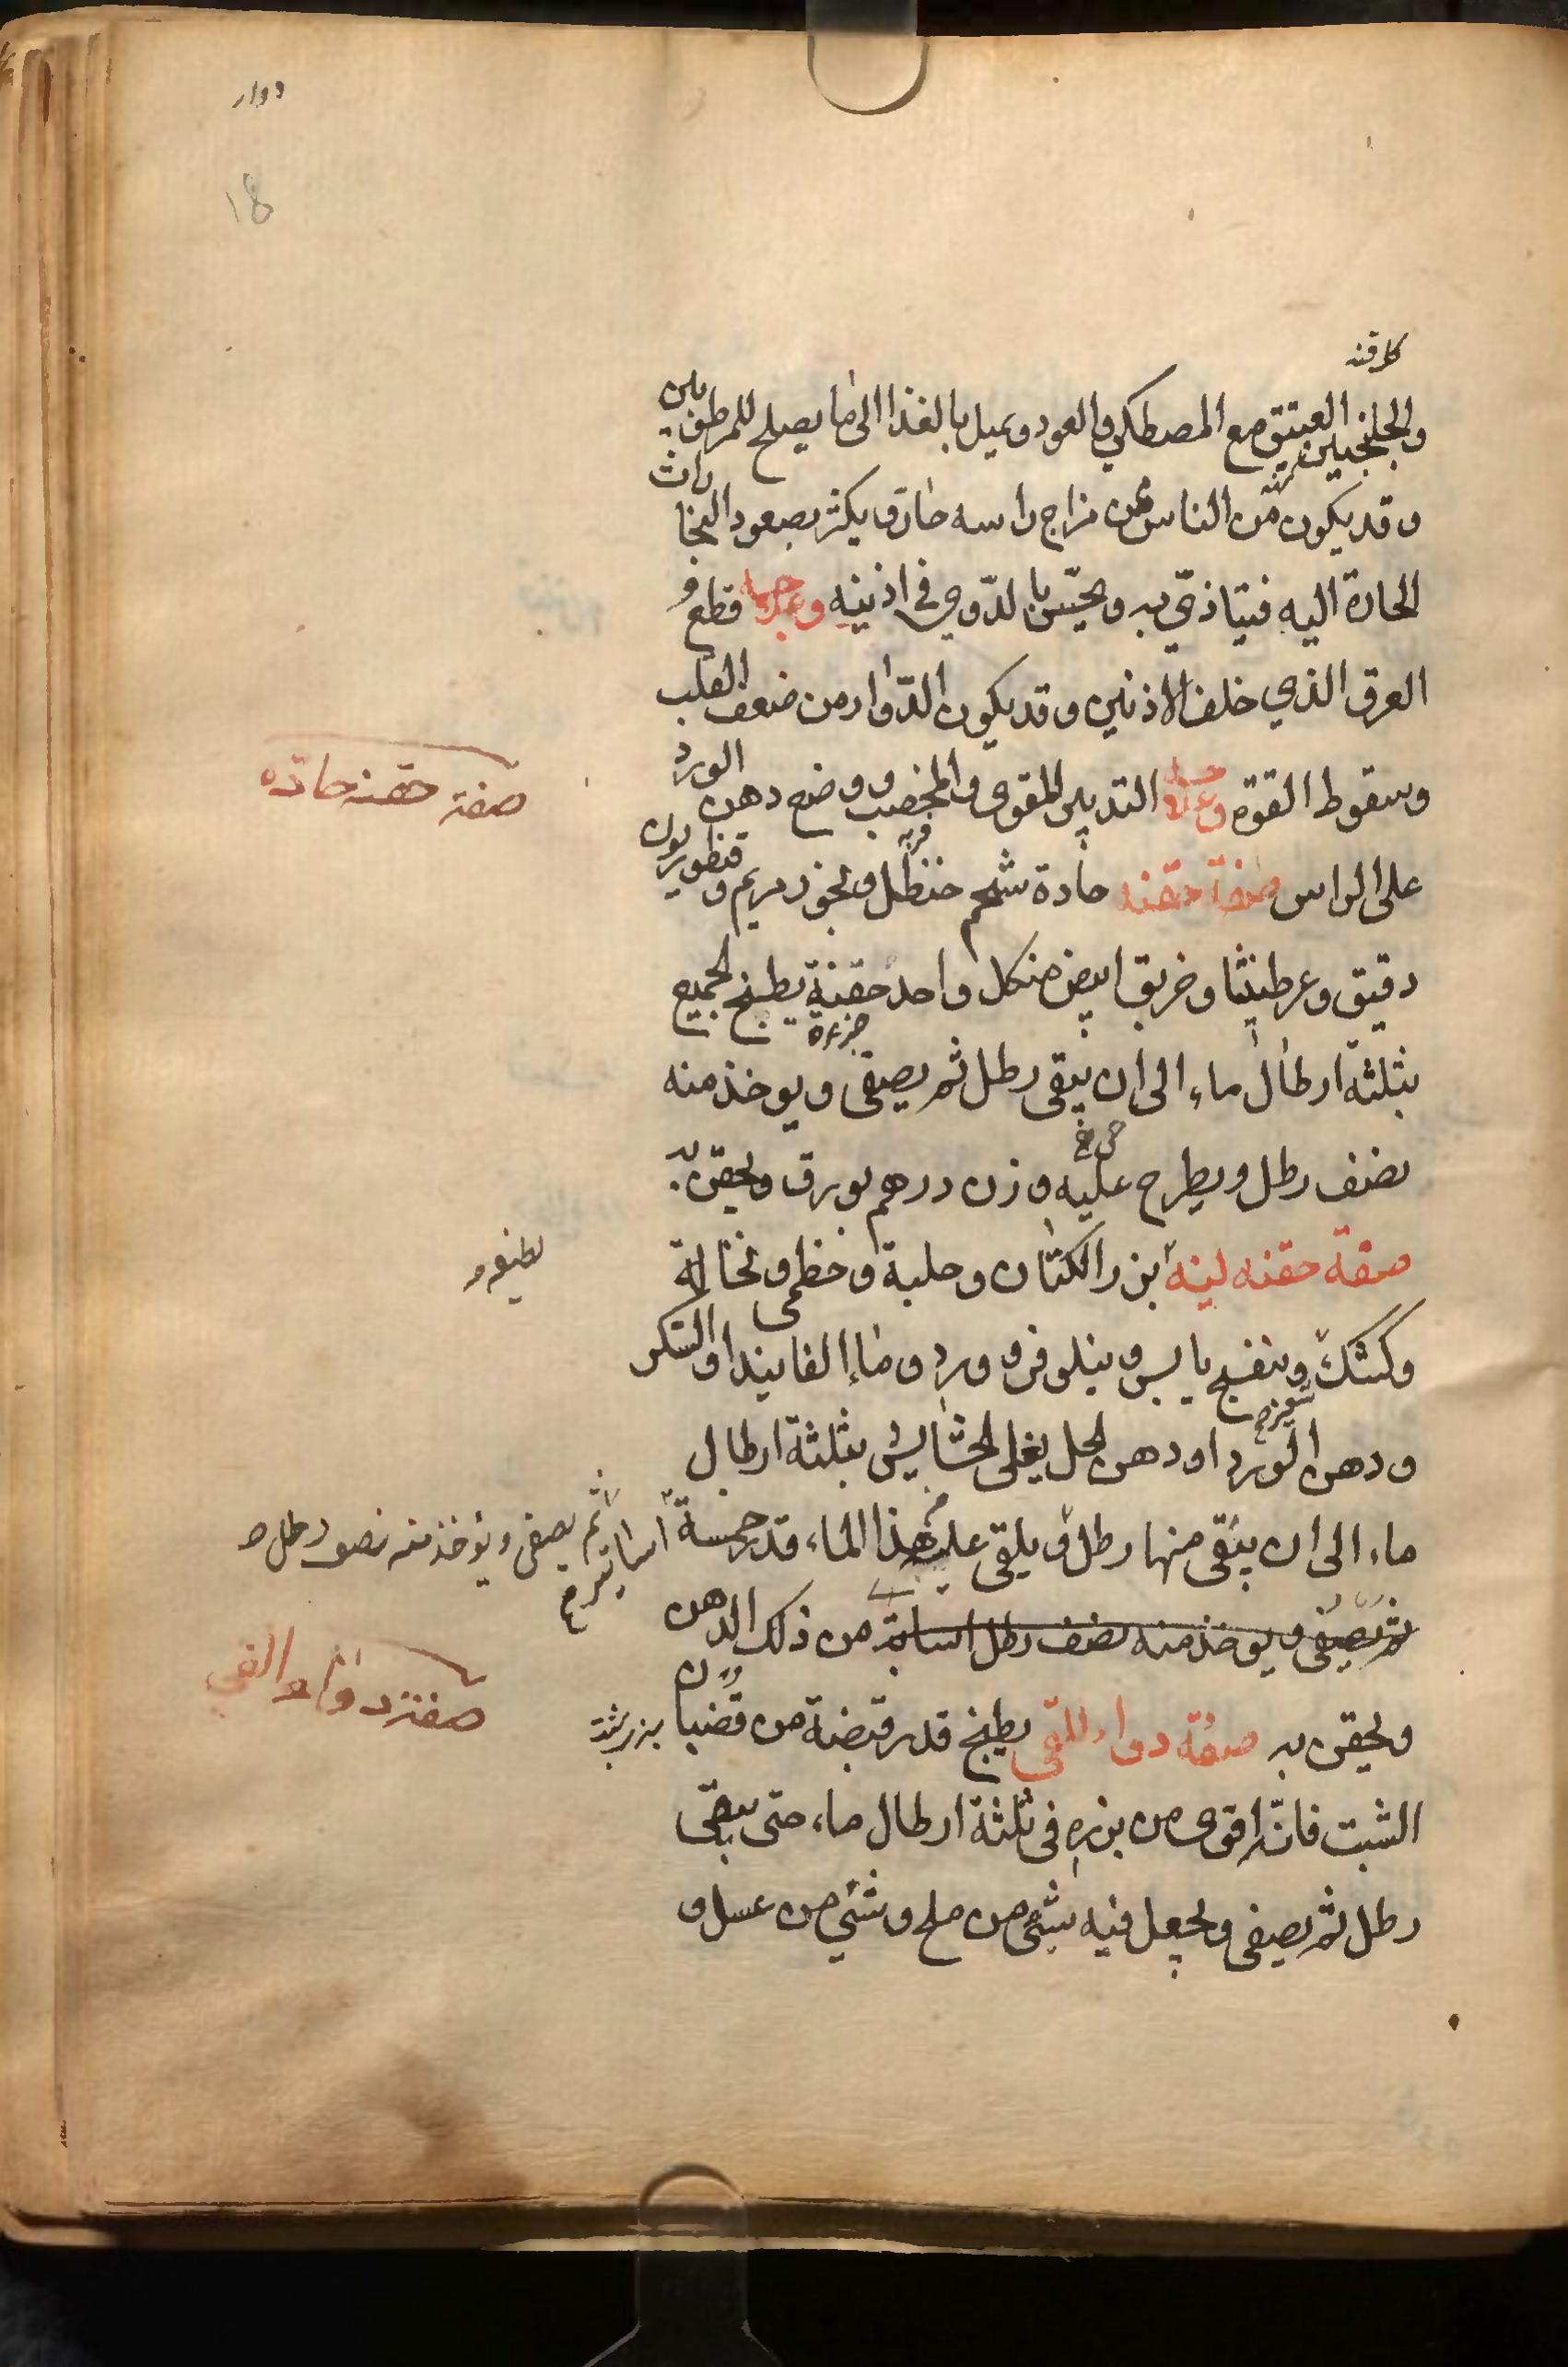 دوار
18
كلرقند
والجلنجبين العتيق مع المصطكي والعود ويميل بالغذا الى ما يصلح للمرطوبين
وقد يكون من الناس من مزاج راسه حار ويكثر بصعود البخارات
الحارة اليه فيتاذي به ويحس بالدوي في اذنيه وعلاجها قطع
العرق الذي خلف الاذنين وقد يكون الدوار من ضعف القلب
وسقوط القوة وعلاجه التدبير المقوى والمخصب ووضع دهن الورد
صفة حقنه حاده
على الراس صفة حقنه حادة شحم حنظل وبخور مريم وقنطوريون
دقيق وعرطنيثا وخربق ابيض من كل واحد حفنة يطبخ الجميع
بثلثة ارطال ماء الى ان يبقى رطل ثم يصفى ويوخذ منه
نصف رطل ويطرح عليه وزن درهم بورق ويحقن به
صفة حقنه لينه بزر الكتان وحلبة وخطمى ونخالة
وكشك وبنفسج يابس ونيلوفر وورد وماء الفانيد او السكر
ودهن الورد او دهن الحل يغلى الحشايش بثلثة ارطال
ماء الى ان يبقى منها رطل ويلقى على هذا الماء قدر خمسة
ثم يصفى ويوخذ منه نصف رطل
ثم يصفى ويوخذ منه نصف رطل اساتير من ذلك الدهن
صفة دواء القي
ويحقن به صفة دواء للقى يطبخ قدر قبضة من قضبان
الشبت فانه اقوى من بزره في ثلثة ارطال ماء حتى يبقى
رطل ثم يصفى ويجعل فيه شئ من ملح وشئ من عسل و